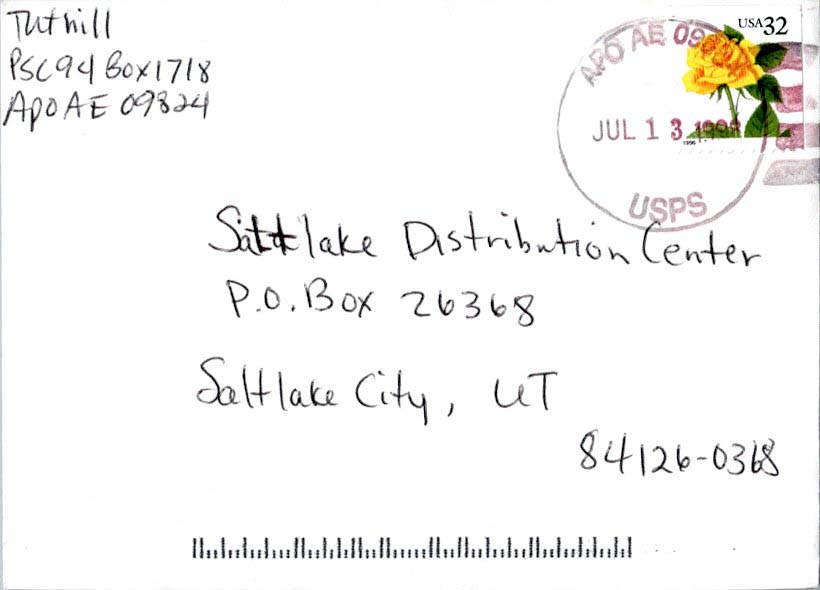 Tuthill
PSC94 Box1718
Apo AE 09824
USA 32
APO AE 09
JUL 13 1998
1996
USPS
Saltlake Distribution Center
P.O. Box 26368
Saltlake City, UT
84126-0368